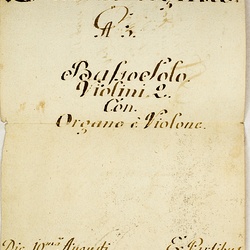 à 3.
Basso Solo
Violini 2.
Con.
Organo è Violone.
Die 10mª Augusti
Ex Partibus